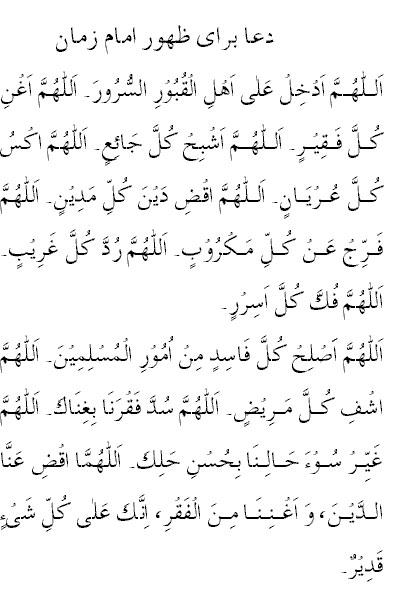 دعا برای ظهور امام زمان
اَللّٰهُمَّ اَدْخِلْ عَلٰی اَهْلِ الْقُبُوْرِ السُّرُورَ۔ اَللّٰهُمَّ اَغْنِ
كُلَّ فَقِیْرٍ۔ اَللّٰهُمَّ اَشْبِحْ كُلَّ جَائِعٍ۔ اَللّٰهُمَّ اكْسُ
كُلَّ عُرْیَانٍ۔ اَللّٰهُمَّ اقْضِ دَیْنَ كُلِّ مَدِیْنٍ۔ اَللّٰهُمَّ
فَرِّجْ عَنْ كُلِّ مَكْرُوْبٍ۔ اَللّٰهُمَّ رُدَّ كُلَّ غَرِیْبٍ۔
اَللّٰهُمَّ فُكَّ كُلَّ اَسِیْرٍ۔
اَللّٰهُمَّ اَصْلِحْ كُلَّ فَاسِدٍ مِنْ اُمُوْرِ الْمُسْلِمِیْنَ۔ اَللّٰهُمَّ
اشْفِ كُلَّ مَرِیْضٍ۔ اَللّٰهُمَّ سُدَّ فَقْرَنَا بِغِنَاكَ۔ اَللّٰهُمَّ
غَیِّرْ سُوْءَ حَالِنَا بِحُسْنِ حَلِكَ۔ اَللّٰهُمَّا اقْضِ عَنَّا
الدَّیْنَ، وَ اَغْنِنَا مِنَ الْفَقْرِ، اِنَّكَ عَلٰی كُلِّ شَیْءٍ
قَدِیْرٌ۔